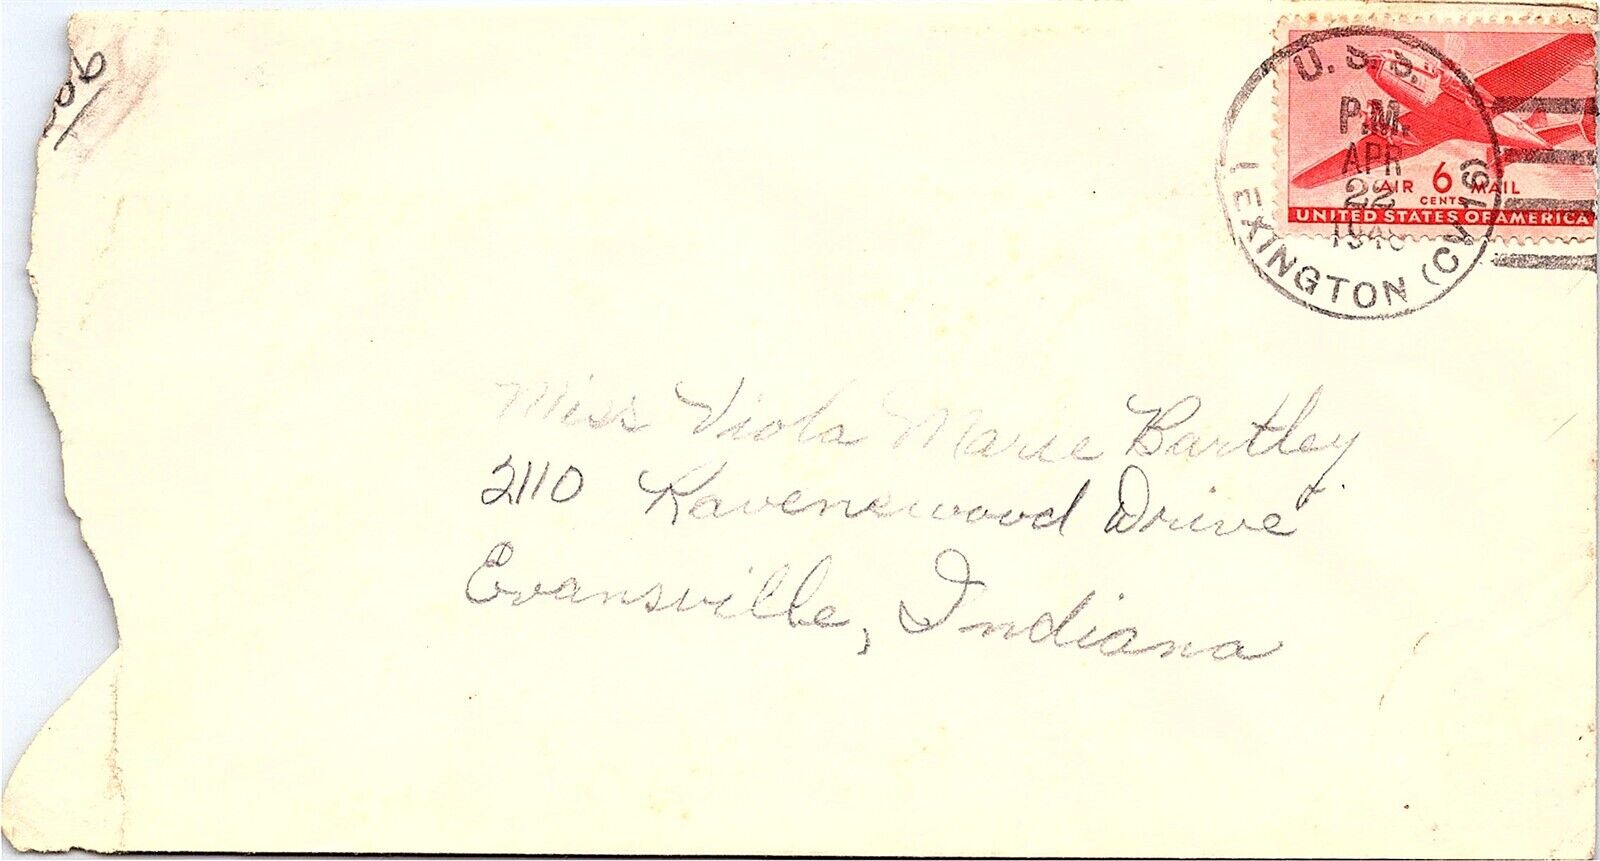 U.S.S.
LEXINGTON (CV-16)
P.M.
APR
22
AIR 6 MAIL
CENTS
UNITED STATES OF AMERICA
Miss Viola Marie Bartley
2110 Ravenswood Drive
Evansville, Indiana